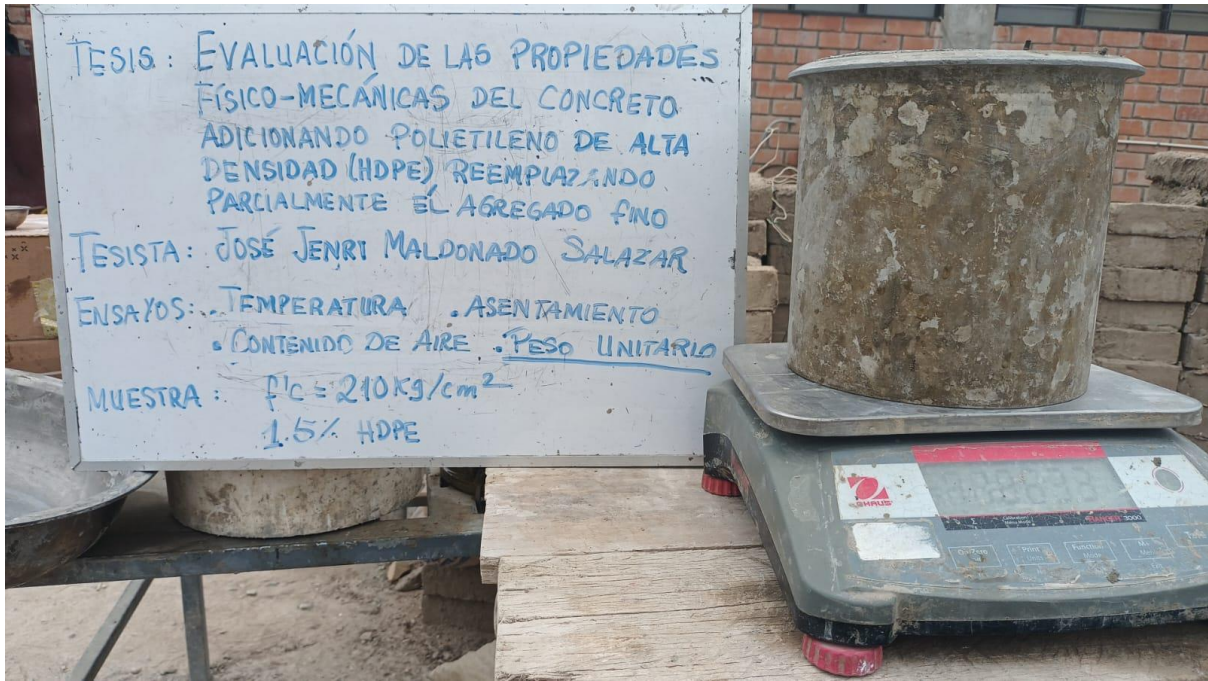 TESIS: EVALUACIÓN DE LAS PROPIEDADES
FÍSICO-MECÁNICAS DEL CONCRETO
ADICIONANDO POLIETILENO DE ALTA
DENSIDAD (HDPE) REEMPLAZANDO
PARCIALMENTE EL AGREGADO FINO
TESISTA: JOSÉ JENRI MALDONADO SALAZAR
ENSAYOS: . TEMPERATURA . ASENTAMIENTO
. CONTENIDO DE AIRE . PESO UNITARIO
MUESTRA: f'c = 210 kg/cm²
1.5% HDPE
OHAUS
RANGER 3000
Print
Function